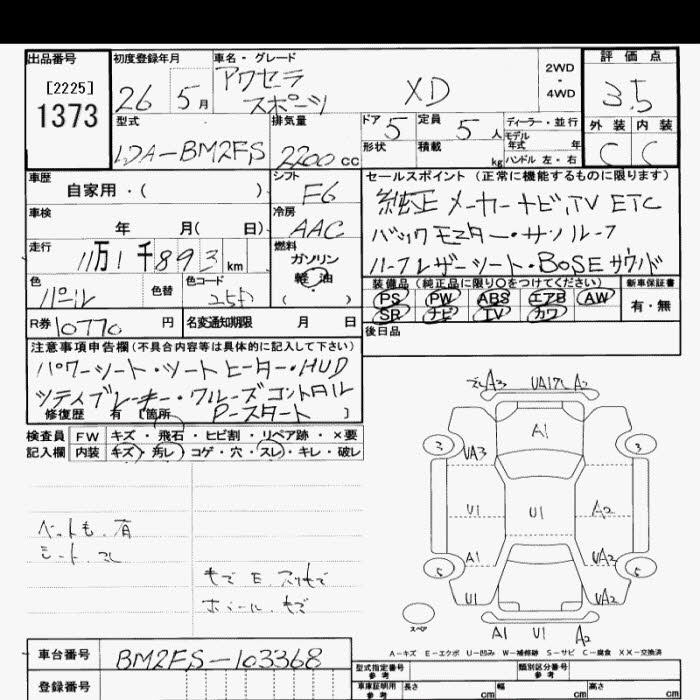 出品番号
[2225]
1373
初度登録年月
26 5月
車名・グレード
アクセラ
スポーツ
XD
2WD
・
4WD
評価点
3.5
外装 内装
C C
型式
LDA-BM2FS
排気量
2200cc
ドア 5
定員 5人
ディーラー・並行
モデル
年式 年
形状
積載 kg
ハンドル 左・右
車歴
自家用・( )
シフト
F6
セールスポイント (正常に機能するものに限ります)
純正メーカーナビ,TV ETC
バックモニター・サンルーフ
ハーフレザーシート・BOSEサウンド
車検
年 月( 日)
冷房
AAC
走行
11万1千893km
燃料
ガソリン
軽油
( )
色
パール
色替
色コード
25D
装備品 (純正品に限り○をつけてください)
PS PW ABS エアB AW
SR ナビ TV カワ
新車保証書
有・無
R券 10770 円
名変通知期限 月 日
後日品
注意事項申告欄(不具合内容等は具体的に記入して下さい)
パワーシート・シートヒーター・HUD
シティブレーキ・クルーズコントロール
Pースタート
修復歴 有 [箇所 ]
検査員
記入欄
FW キズ・飛石・ヒビ割・リペア跡・×要
内装 キズ・汚レ・コゲ・穴・スレ・キレ・破レ
ペット毛.有
シート.スレ
モール.キズ
A3 UA
A1
3 3
UA3
U1 U1 A2
A1 UA2
5 5
U1 UA2
スペア
A1 U1 A2
A-キズ E-エクボ U-凹み W-補修跡 S-サビ C-腐食 XX-交換済
車台番号
BM2FS-103368
登録番号
型式指定番号
参考
類別区分番号
参考
車庫証明用
参考
長さ cm
幅 cm
高さ cm